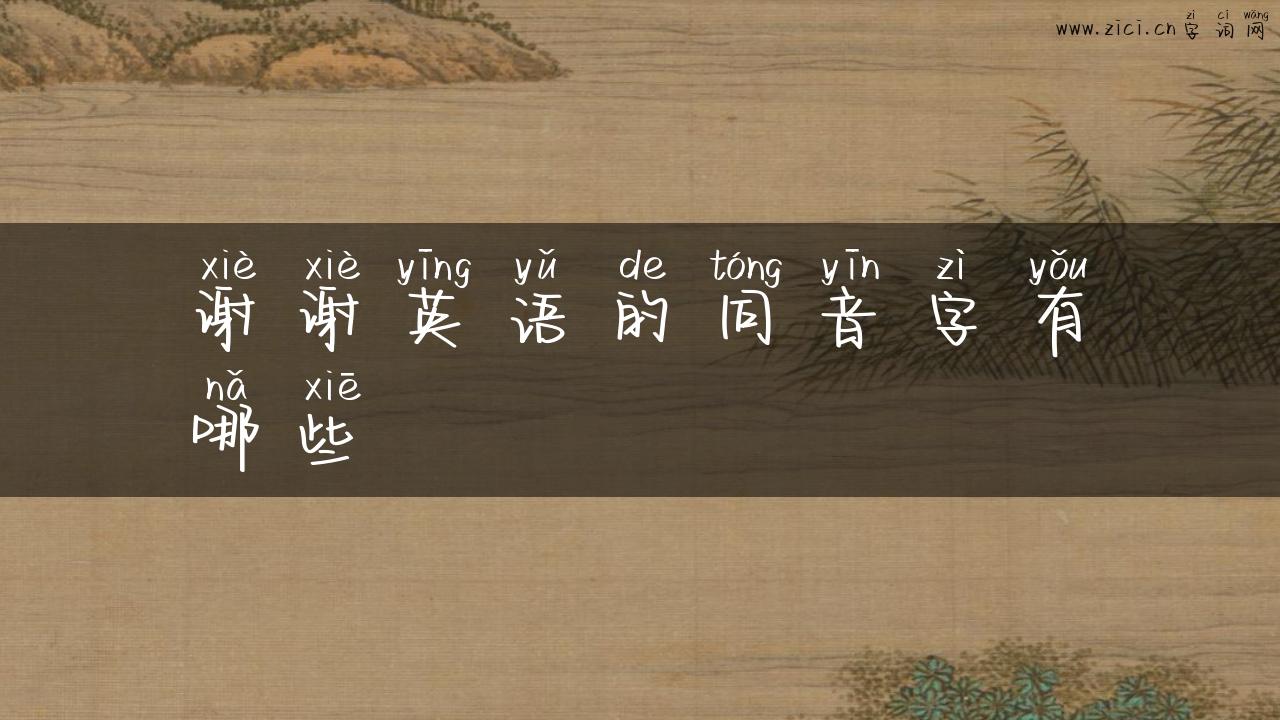 zì cí wǎng
www.zici.cn 字词网
xiè xiè yīng yǔ de tóng yīn zì yǒu
谢谢英语的同音字有
nǎ xiē
哪些